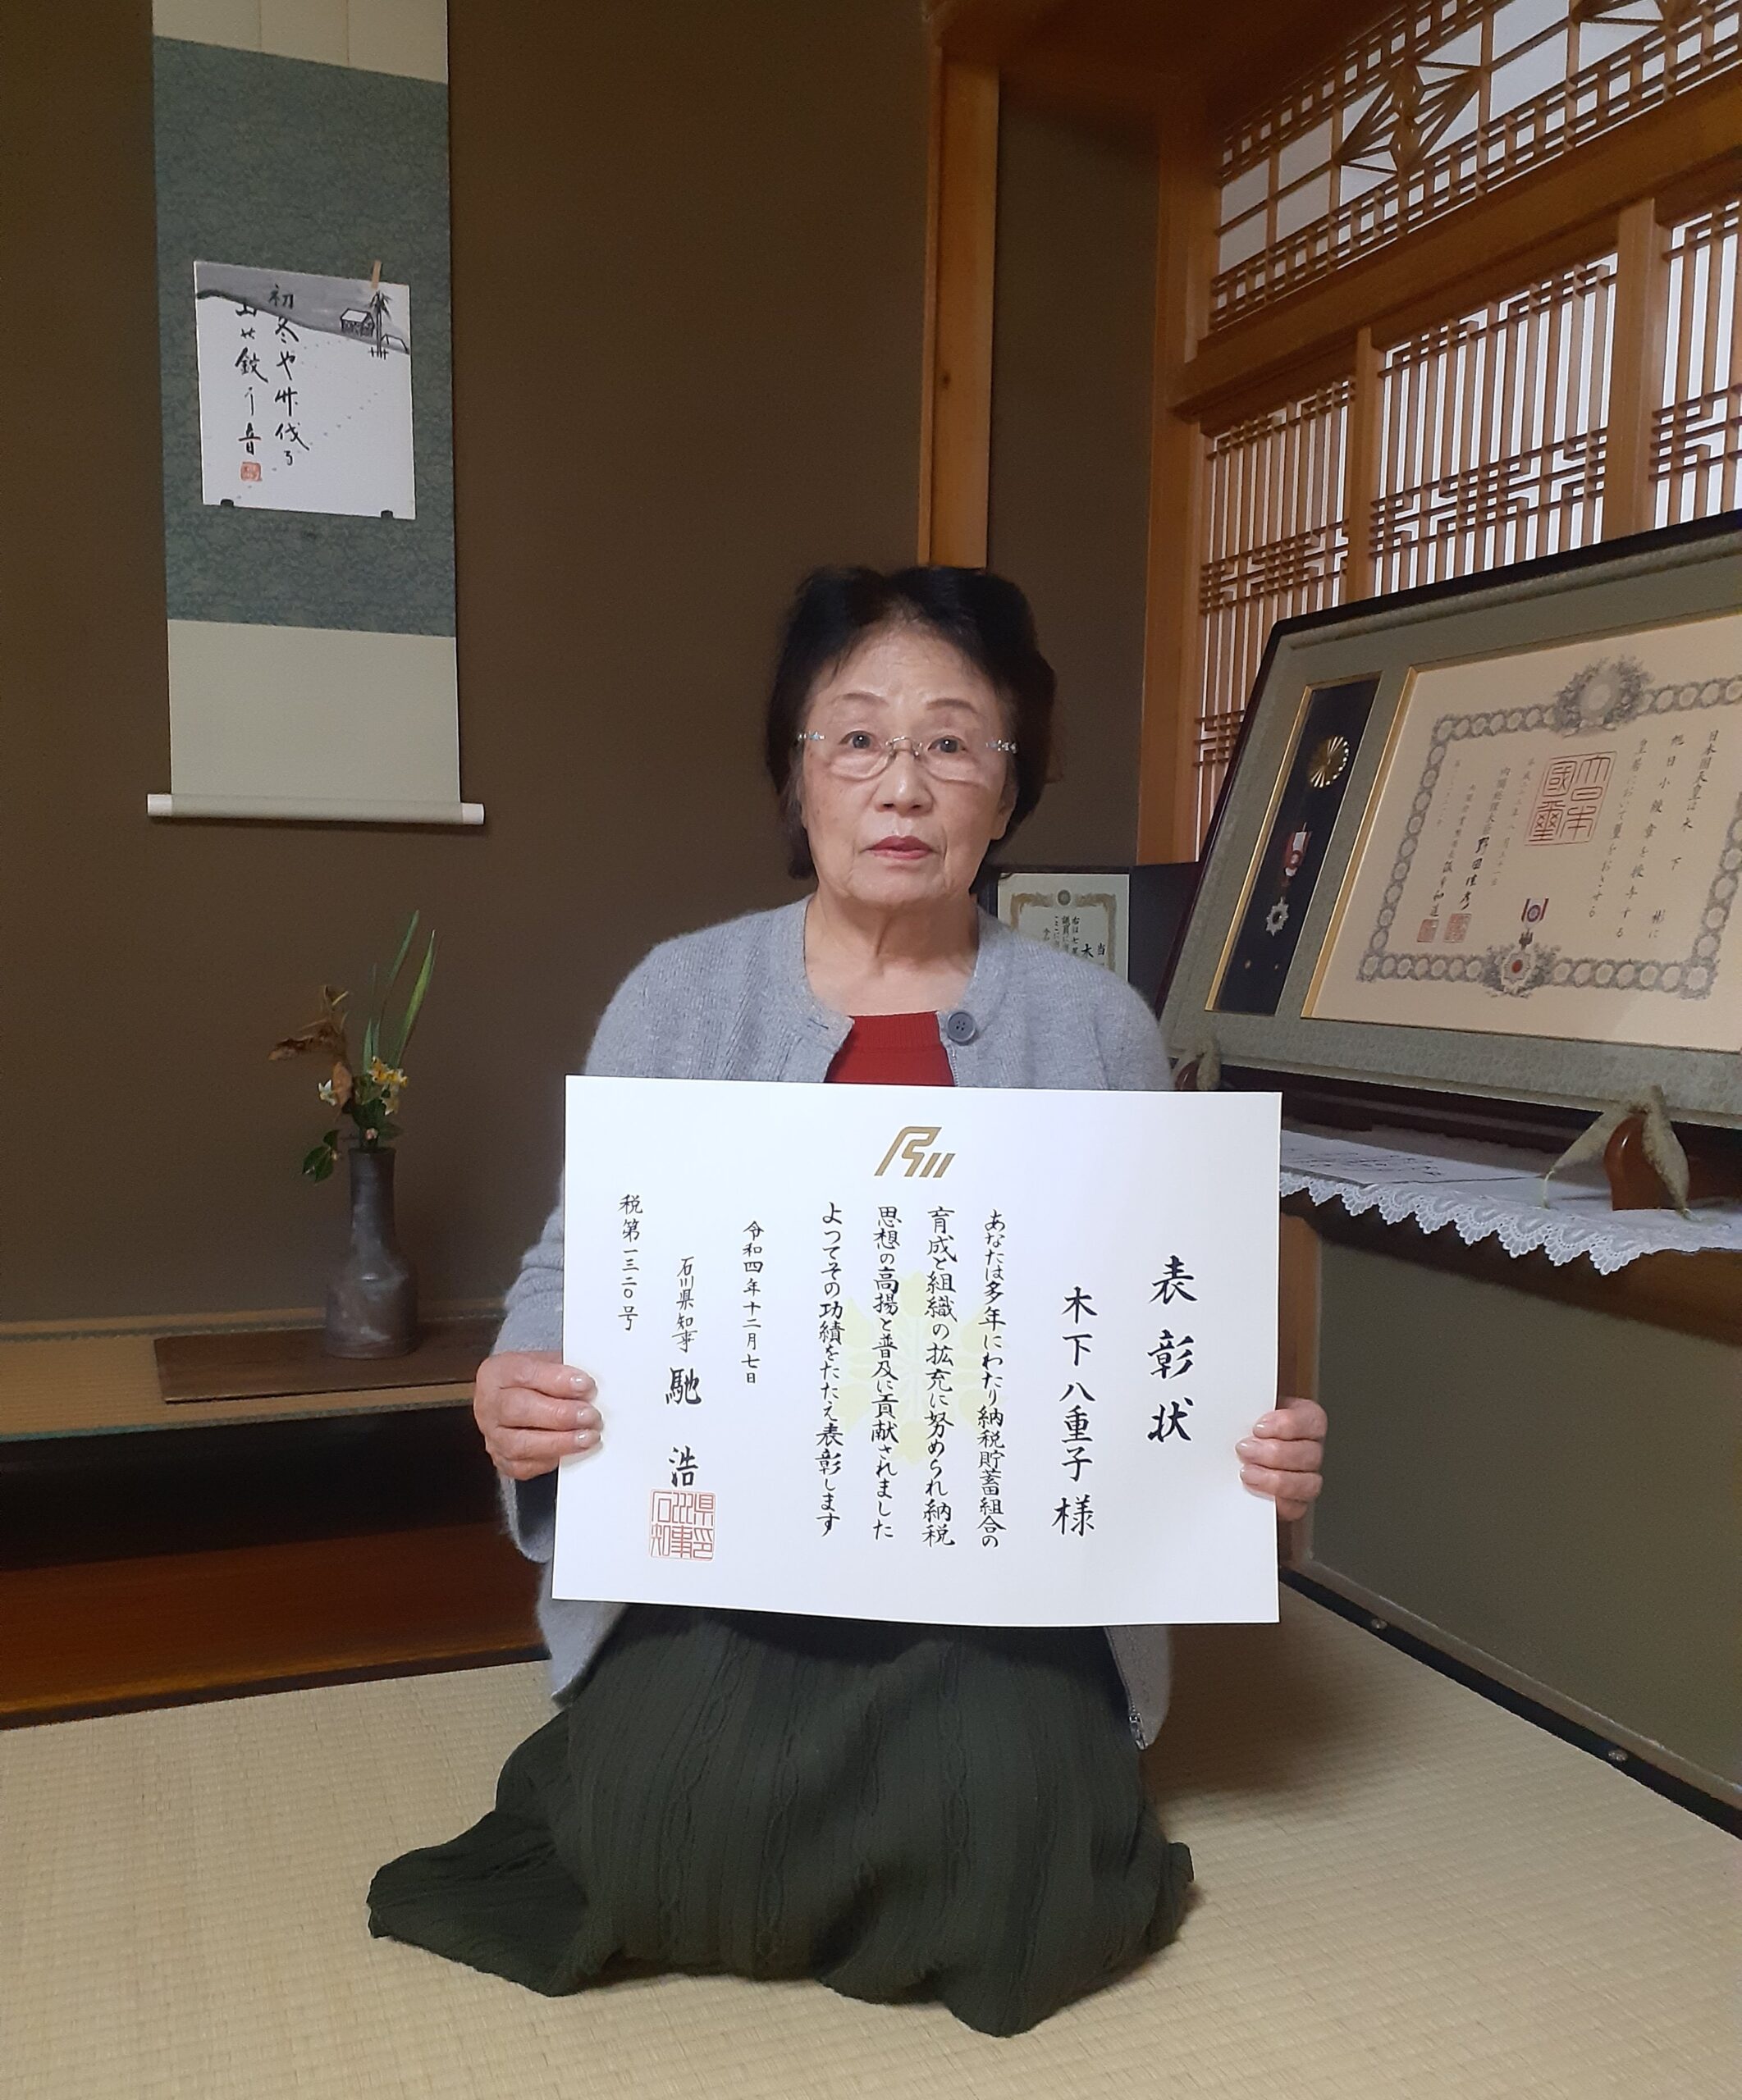 表彰状
木下八重子様
あなたは多年にわたり納税貯蓄組合の
育成と組織の拡充に努められ納税
思想の高揚と普及に貢献されました
よってその功績をたたえ表彰します
令和四年十二月七日
石川県知事 馳 浩
石川県知事印
税第一三二〇号
初冬や竹伐る
山の鉈の音
日本国天皇は木下 彬に
旭日小綬章を授与する
皇居において璽をおさせる
大日本國璽
内閣総理大臣 野田佳彦